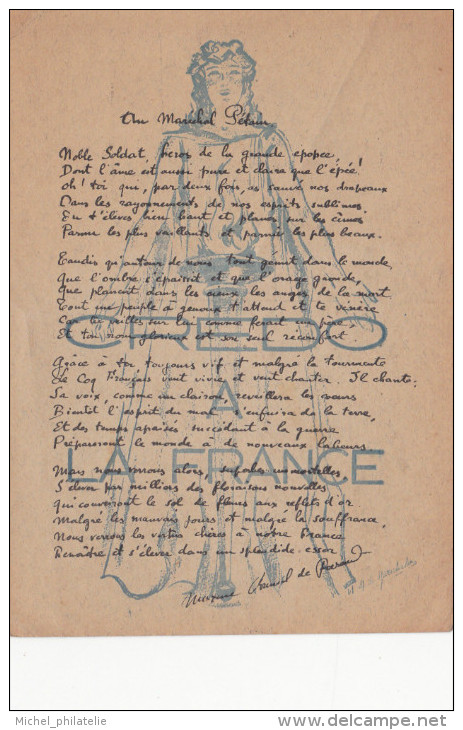 Au Maréchal Pétain
Noble Soldat, héros de la grande épopée
Dont l'âme est aussi pure et claire que l'épée!
Oh! toi qui, par deux fois, as sauvé nos drapeaux
Dans les rayonnements de nos esprits sublimes
Tu t'élèves bien haut et planes sur les cimes
Parmi les plus vaillants et parmi les plus beaux.
Tandis qu'autour de nous tout gémit dans le monde,
Que l'ombre s'épaissit et que l'orage gronde,
Que planent dans les cieux les anges de la mort
Tout un peuple à genoux t'attend et te vénère
Car tu veilles sur lui comme ferait un père
Et ton nom glorieux est son seul réconfort
CREDO
Grâce à toi toujours vif et malgré la tourmente
Le Coq Français veut vivre et veut chanter. Il chante:
Sa voix, comme un clairon, réveillera les cœurs
A
Bientôt l'esprit du mal s'enfuira de la terre,
Et des temps apaisés succédant à la guerre
Prépareront le monde à de nouveaux labeurs
LA FRANCE
Mais nous verrons alors, superbes immortelles,
S'élever par millions des floraisons nouvelles
Qui couvriront le sol de fleurs aux reflets d'or.
Malgré les mauvais jours et malgré la souffrance,
Nous verrons les vertus chères à notre France
Renaître et s'élever dans un splendide essor
de
Michel_philatelie
delcampe.net